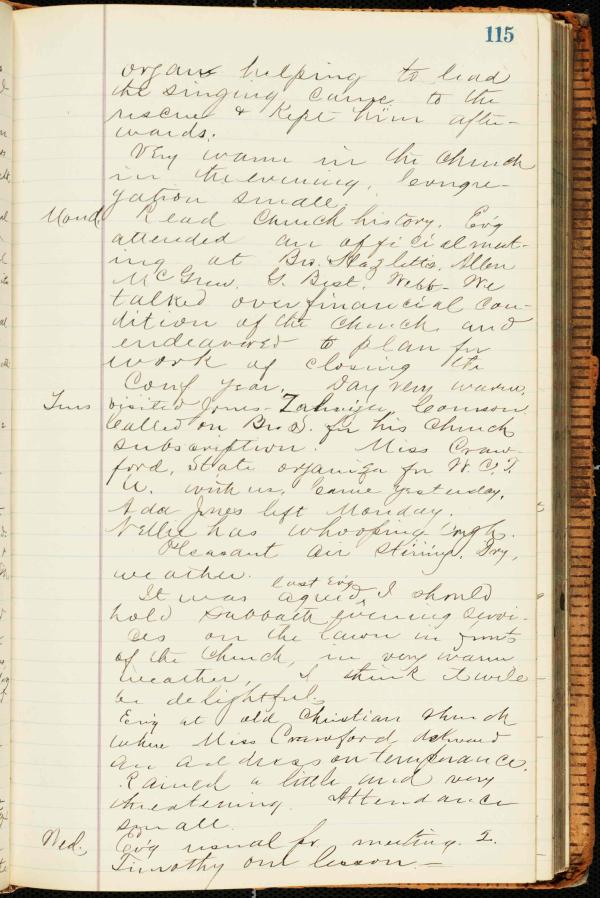 115
organ helping to lead
the singing came to the
rescue & kept him after-
wards.
Very warm in the church
in the evening, Congre-
gation small.
Mond. Read Church history. Ev'g
attended an official meet-
ing at Bro. Hazletts. Allen
McGrew, G. Best, Webb - We
talked over financial con-
dition of the church and
endeavored to plan for
work of closing the
Conf year. Day very warm.
Tues visited Jones -
Called on Bro S. for his church
subscription. Miss Craw-
ford, State organizer for W. C. T.
U. with us, Came yesterday.
Ada Jones left Monday.
Nellie has whooping cough.
Pleasant air stirring. Dry,
weather.
last Ev'g
It was agreed I should
hold Sabbath evening servi-
ces on the lawn in front
of the Church, in very warm
weather, I think it will
be delightful.
Ev'g at old Christian church
where Miss Crawford delivered
an address on temperance.
Rained a little and very
threatening. Attendance
small.
Wed. Ev'g usual pr. meeting. 2.
Timothy our lesson -